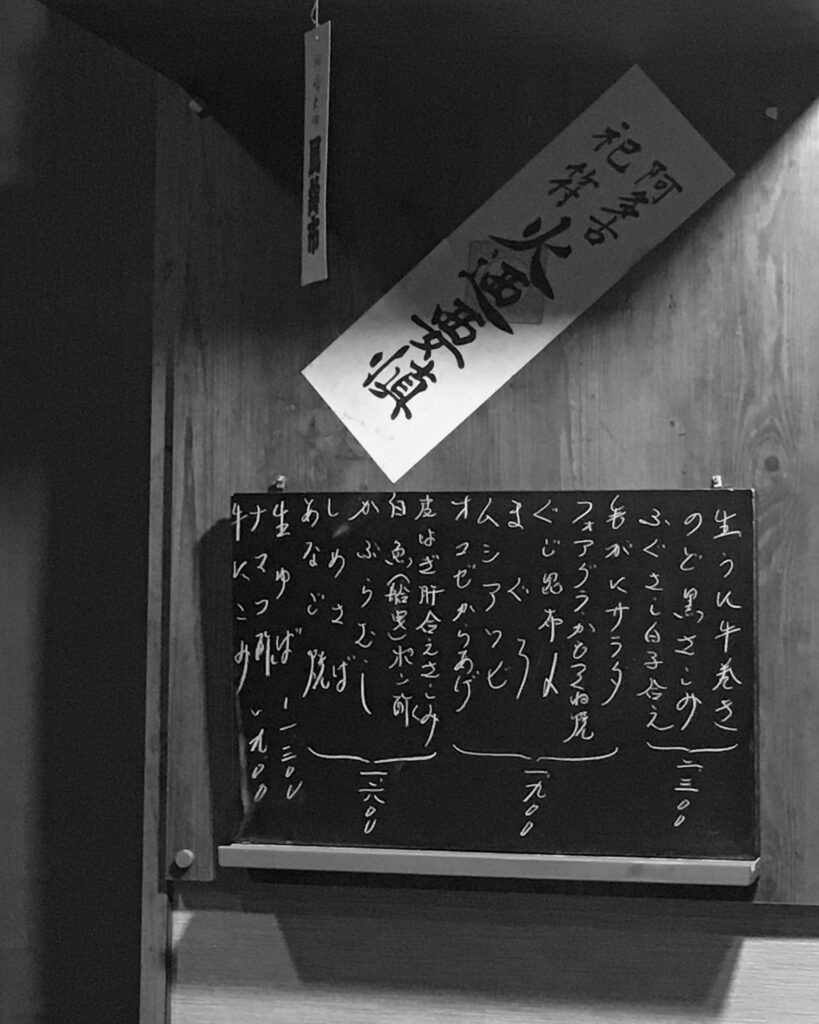 阿多古
祀符
火迺要慎
生うに牛巻き
のど黒さしみ
ふぐさし白子合え
二、三〇〇
毛がにサラダ
フォアグラかもつくね焼
ぐじ昆布〆
まぐろ
ムシアワビ
オコゼからあげ
一、九〇〇
皮はぎ肝合えさしみ
白魚(船曳)ポン酢
かぶらむし
しめさば
あなご焼
一、六〇〇
生ゆば
ナマコ酢
牛にこみ 、九〇〇